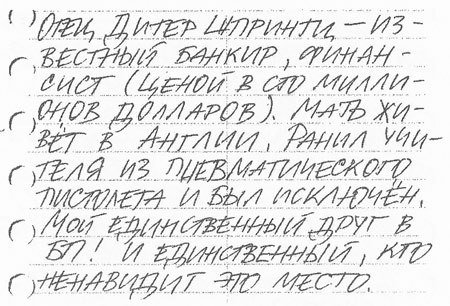 ОТЕЦ ДИТЕР ШПРИНТЦ – ИЗ-
ВЕСТНЫЙ БАНКИР, ФИНАН-
СИСТ (ЦЕНОЙ В СТО МИЛЛИ-
ОНОВ ДОЛЛАРОВ). МАТЬ ЖИ-
ВЁТ В АНГЛИИ. РАНИЛ УЧИ-
ТЕЛЯ ИЗ ПНЕВМАТИЧЕСКОГО
ПИСТОЛЕТА И БЫЛ ИСКЛЮЧЁН.
МОЙ ЕДИНСТВЕННЫЙ ДРУГ В
БП! И ЕДИНСТВЕННЫЙ, КТО
НЕНАВИДИТ ЭТО МЕСТО.